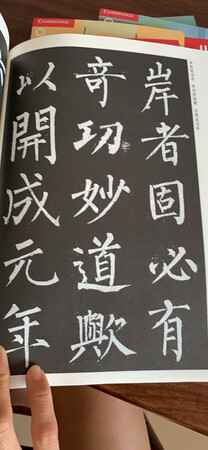 CAMBRIDGE
CAMBRIDGE
岸者固必有
奇功妙道歟
以開成元年